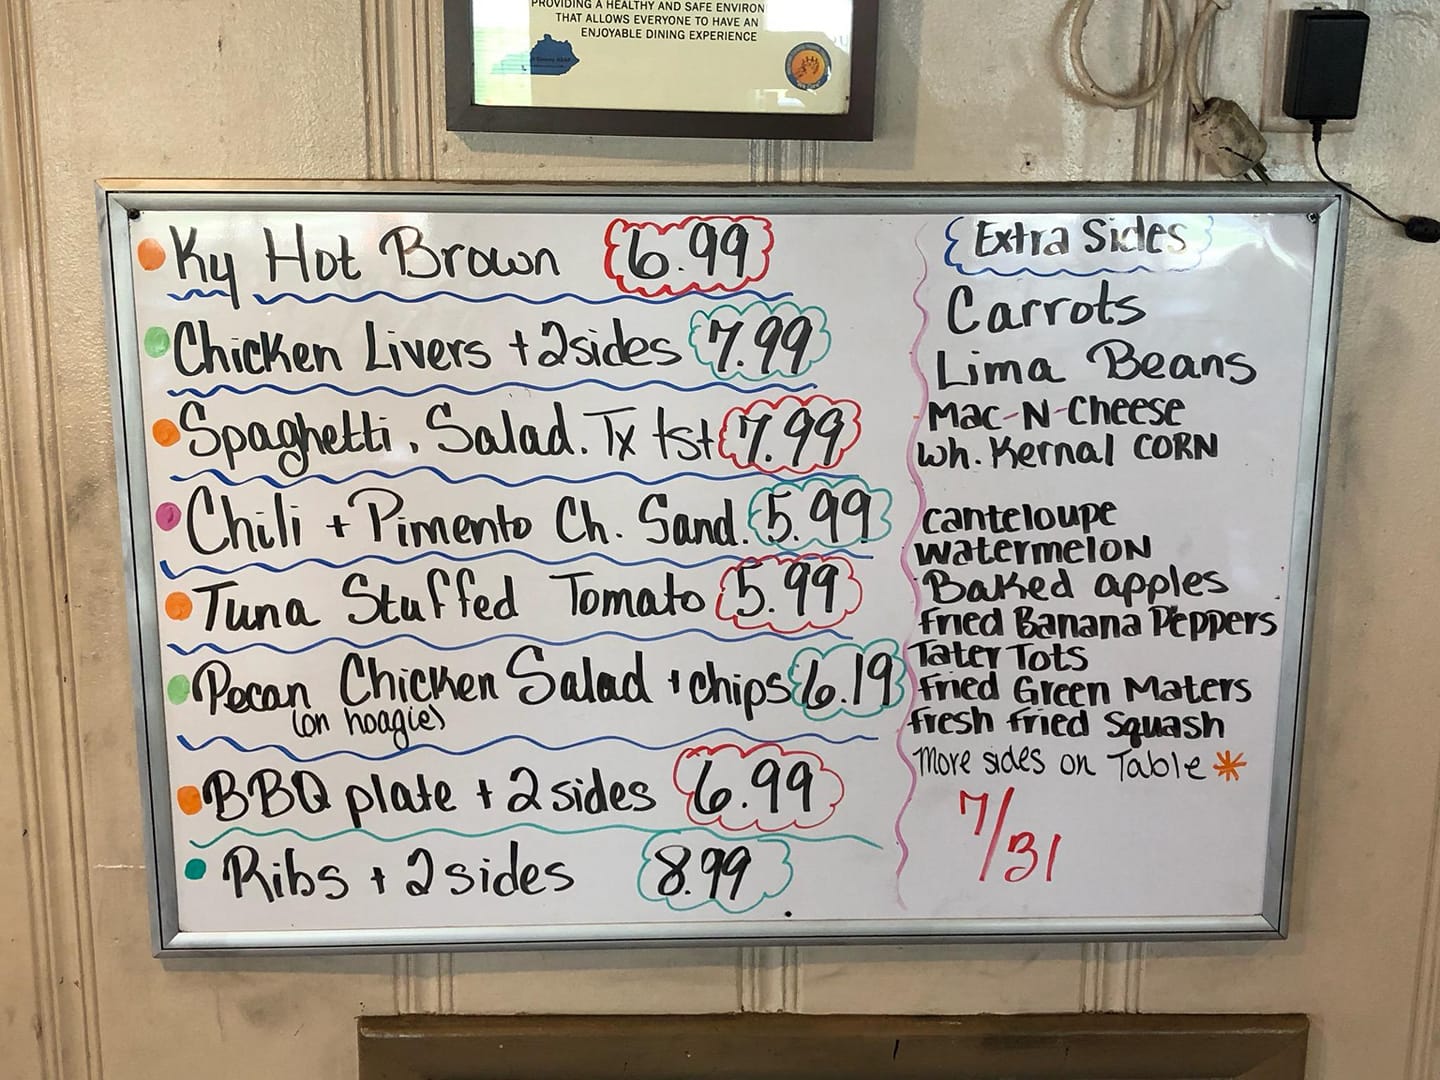 PROVIDING A HEALTHY AND SAFE ENVIRON
THAT ALLOWS EVERYONE TO HAVE AN
ENJOYABLE DINING EXPERIENCE
Ky Hot Brown 6.99
Chicken Livers + 2 sides 7.99
Spaghetti, Salad. Tx tst 7.99
Chili + Pimento Ch. Sand. 5.99
Tuna Stuffed Tomato 5.99
Pecan Chicken Salad + chips 6.19
(on hoagie)
BBQ plate + 2 sides 6.99
Ribs + 2 sides 8.99
Extra Sides
Carrots
Lima Beans
Mac-N-Cheese
Wh. Kernal CORN
canteloupe
watermelon
Baked apples
fried Banana Peppers
Tater Tots
fried Green Maters
fresh fried Squash
More sides on Table *
7/31